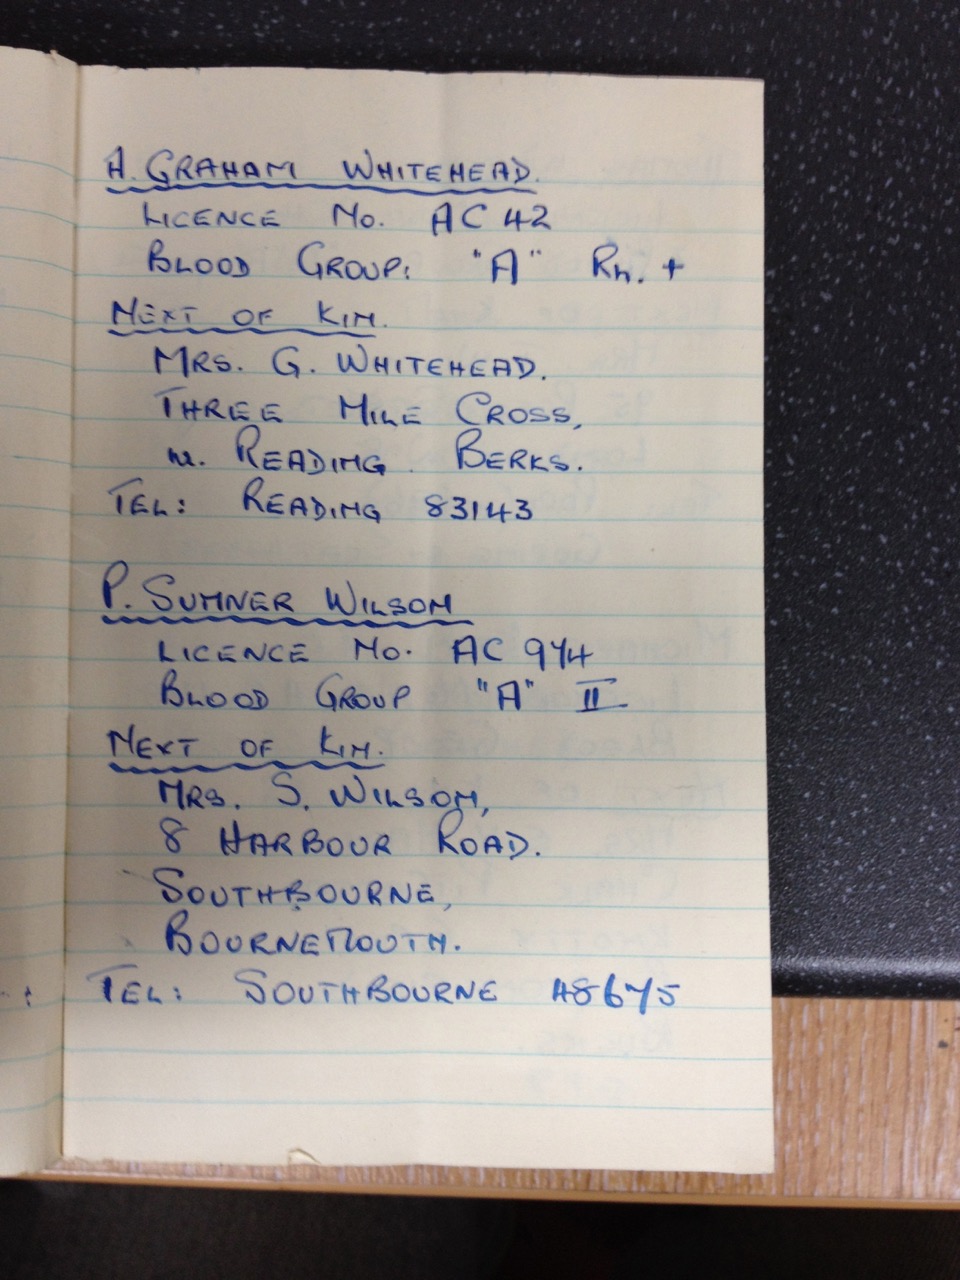 A. GRAHAM WHITEHEAD.
LICENCE NO. AC 42
BLOOD GROUP: "A" RH. +
NEXT OF KIN.
MRS. G. WHITEHEAD.
THREE MILE CROSS,
nr. READING. BERKS.
TEL: READING 83143
P. SUMNER WILSON
LICENCE NO. AC 974
BLOOD GROUP "A" II
NEXT OF KIN.
MRS. S. WILSON,
8 HARBOUR ROAD.
SOUTHBOURNE,
BOURNEMOUTH.
TEL: SOUTHBOURNE 48675